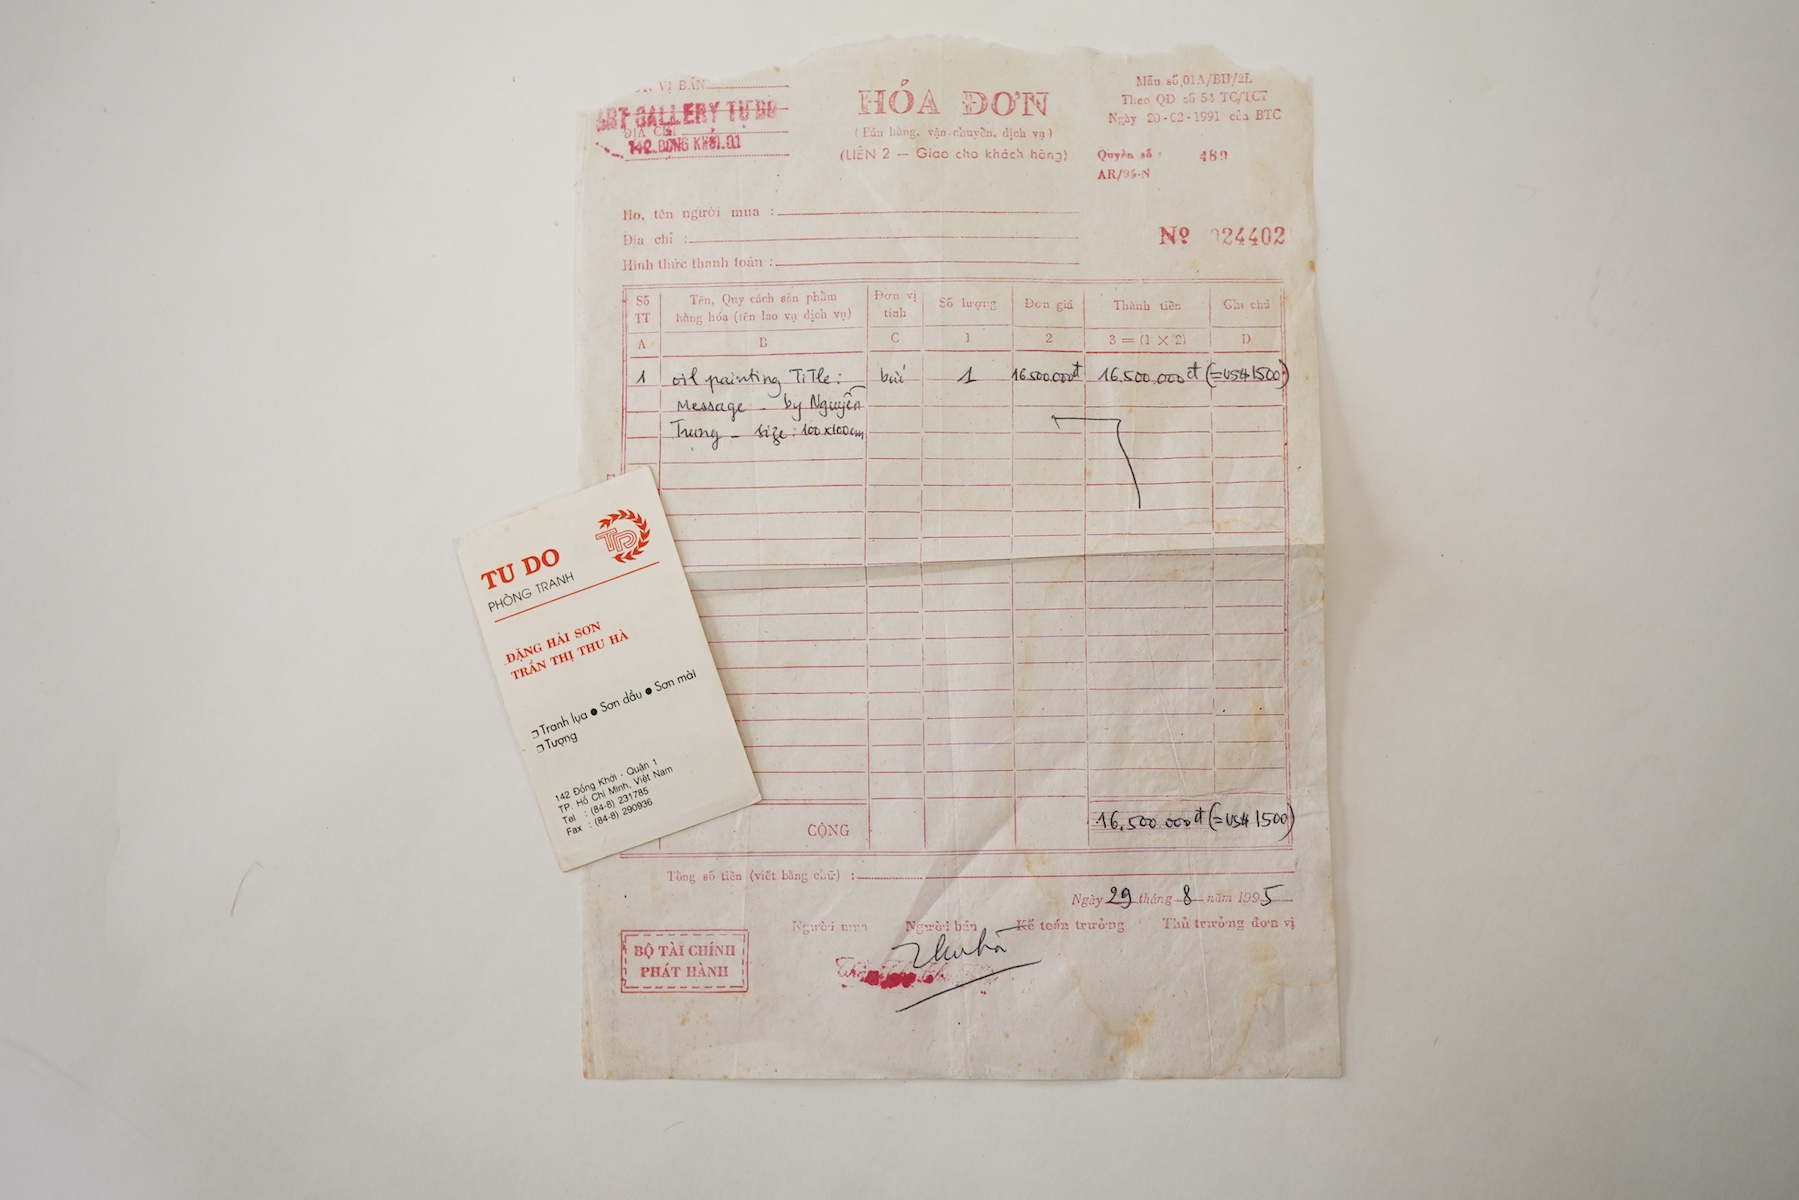 VỊ BÁN
ART GALLERY TU DO
ĐỊA CHỈ
142 ĐỒNG KHỞI.Q1
HÓA ĐƠN
(Bán hàng, vận chuyển, dịch vụ)
(LIÊN 2 — Giao cho khách hàng)
Mẫu số 01A/BH/2L
Theo QĐ số 54 TC/TCT
Ngày 20-02-1991 của BTC
Quyển số : 489
AR/95-N
Họ, tên người mua :
Địa chỉ :
Hình thức thanh toán :
Nº 024402
Số TT
Tên, Quy cách sản phẩm
hàng hóa (tên lao vụ dịch vụ)
Đơn vị tính
Số lượng
Đơn giá
Thành tiền
Ghi chú
A B C 1 2 3 = (1 × 2) D
1 oil painting TiTle: bức 1 16.500.000đ 16.500.000đ (=US$1500)
Message - by Nguyễn
Trung - size: 100x100cm
CỘNG 16.500.000đ (=US$1500)
Tổng số tiền (viết bằng chữ) :
Ngày 29 tháng 8 năm 1995
Người mua Người bán Kế toán trưởng Thủ trưởng đơn vị
Thu hà
BỘ TÀI CHÍNH
PHÁT HÀNH
TU DO
TD
PHÒNG TRANH
ĐẶNG HẢI SƠN
TRẦN THỊ THU HÀ
Tranh lụa ● Sơn dầu ● Sơn mài
Tượng
142 Đồng Khởi - Quận 1
TP. Hồ Chí Minh, Việt Nam
Tel : (84-8) 231785
Fax : (84-8) 290936